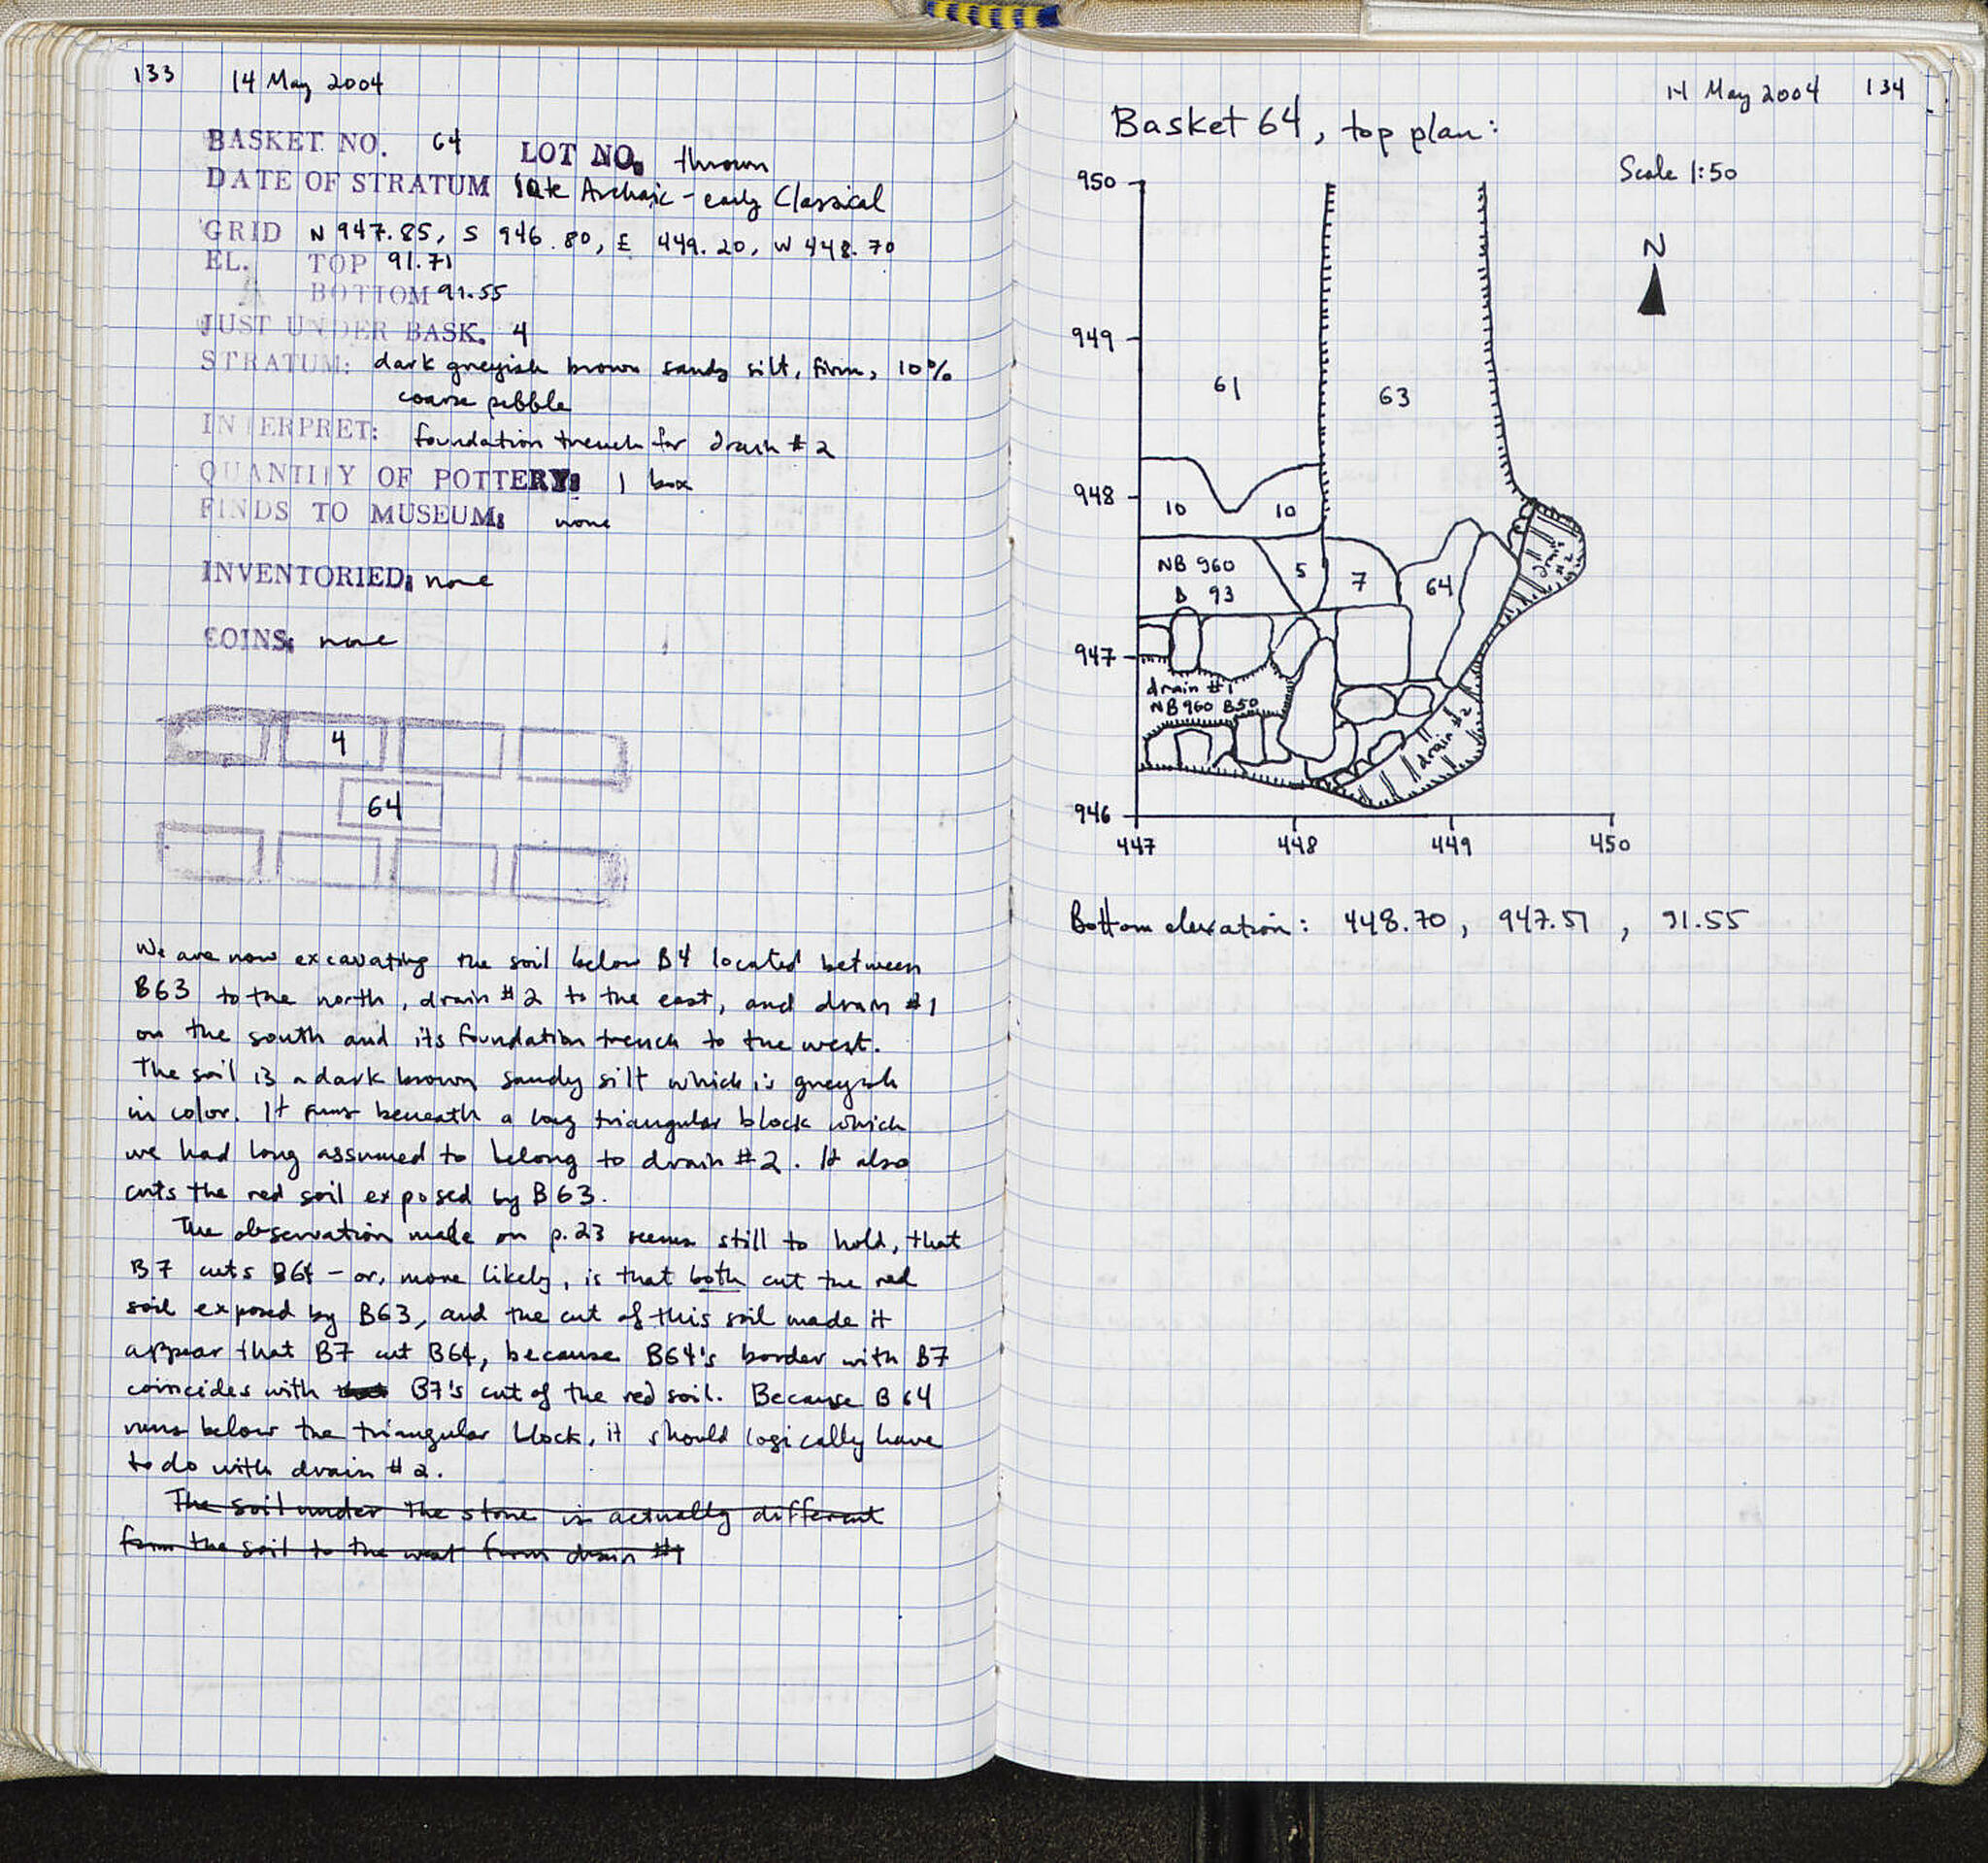 133 14 May 2004
BASKET NO. 64 LOT NO. thrown
DATE OF STRATUM late Archaic - early Classical
GRID N 947.85, S 946.80, E 449.20, W 448.70
EL. TOP 91.71
BOTTOM 91.55
JUST UNDER BASK. 4
STRATUM: dark greyish brown sandy silt, firm, 10%
coarse pebble
INTERPRET: foundation trench for drain #2
QUANTITY OF POTTERY: 1 box
FINDS TO MUSEUM: none
INVENTORIED: none
COINS: none
4
64
We are now excavating the soil below B4 located between
B63 to the north, drain #2 to the east, and drain #1
on the south and its foundation trench to the west.
The soil is a dark brown sandy silt which is greyish
in color. It runs beneath a long triangular block which
we had long assumed to belong to drain #2. It also
cuts the red soil exposed by B63.
The observation made on p.23 seems still to hold, that
B7 cuts B64 - or, more likely, is that both cut the red
soil exposed by B63, and the cut of this soil made it
appear that B7 cut B64, because B64's border with B7
coincides with B7's cut of the red soil. Because B64
runs below the triangular block, it should logically have
to do with drain #2.
The soil under the stone is actually different
form the soil to the west form drain #1
14 May 2004 134
Basket 64, top plan:
Scale 1:50
N
950
949
61 63
948
10 10
NB 960
B 93
5 7 64
drain #2
947
drain #1
NB 960 B50
drain #2
946
447 448 449 450
Bottom elevation: 448.70, 947.51, 91.55